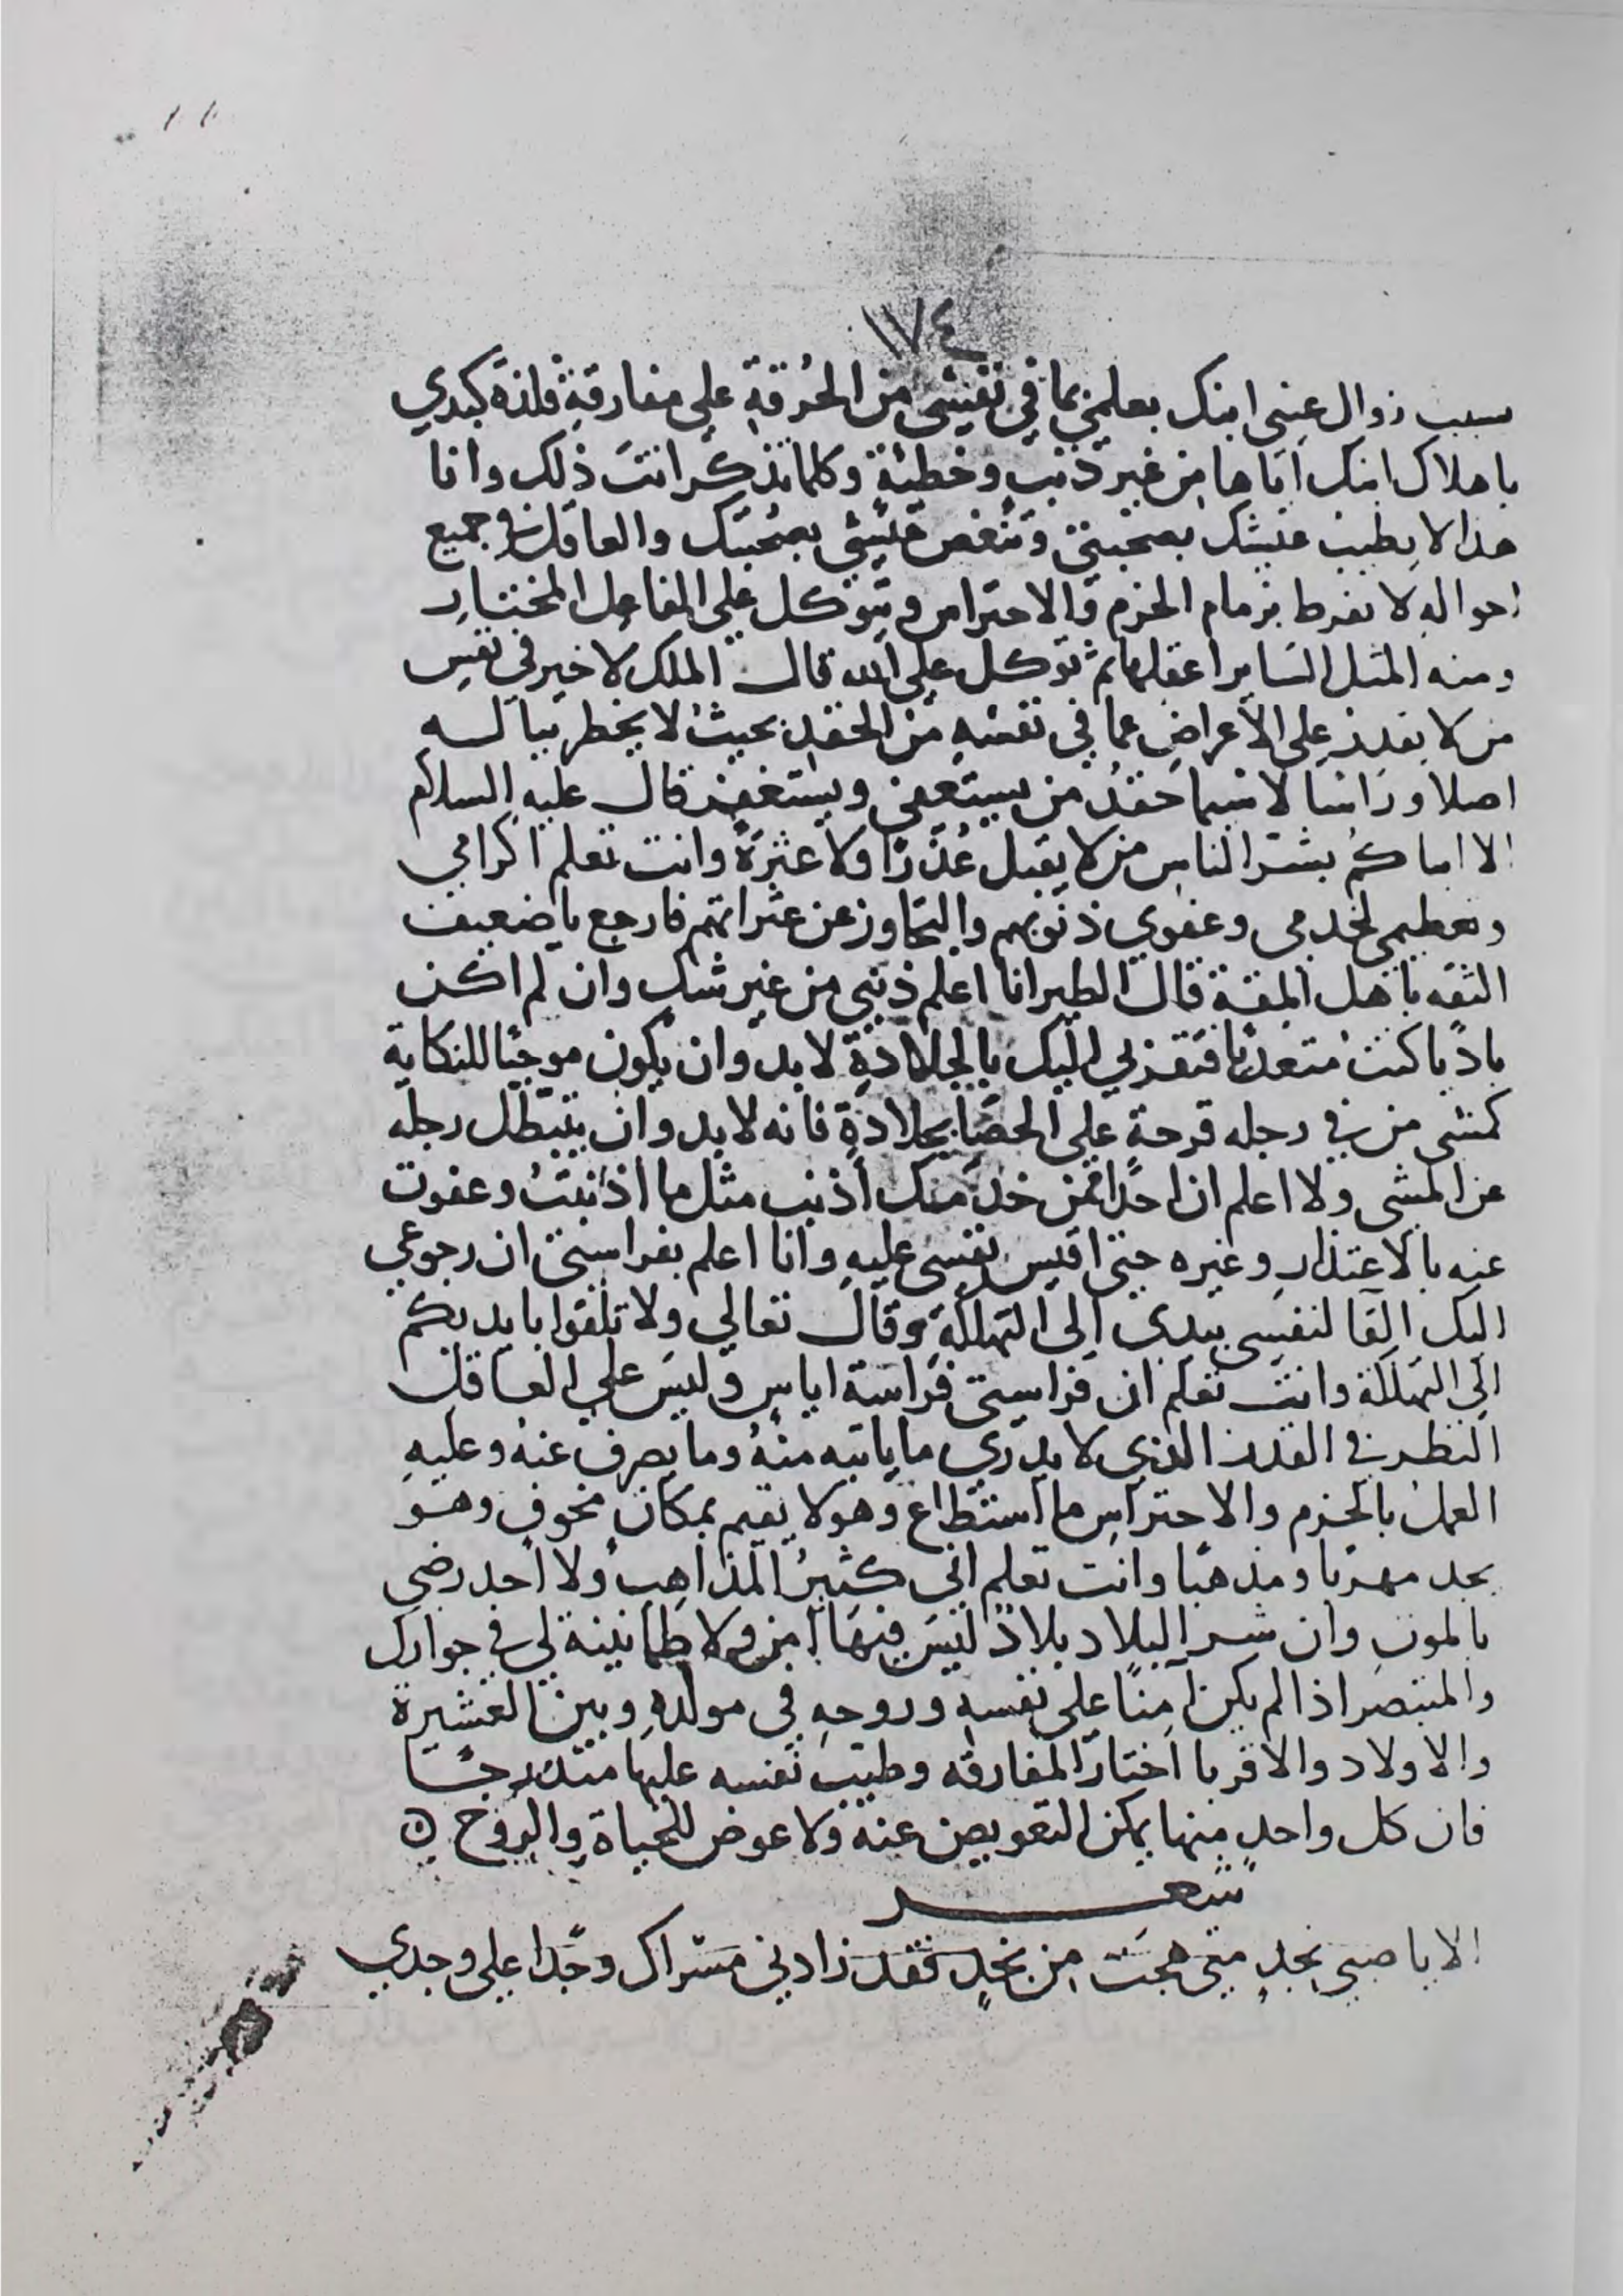 ١٧٤
سبب زوال عيني ابنك بعلمي بما في نفسي من الحُرقةِ علي مفارقةِ فلذة كبدي
باهلاك ابنك اياها من غير ذنبٍ وخطيئةٍ وكلما تذكر انتَ ذلك وانا
هذا لا يطيب عيشك بصحبتي وتنغص عيشي بصحبتك والعاقل في جميع
احوالهِ لا يفرط بزمام الحزم والاحتراس ويتوكل علي الفاعل المختار
ومنه المثل الساير اعقلها ثم توكل علي الله قال الملك لا خير في نفسِ
من لا يقدر علي الاعراضِ عما في نفسهِ من الحقد بحيثُ لا يخطر بباله
اصلا وراسا لا سيما حقدُ من يستعفي ويستغفر قال عليهِ السلام
الا انباكمُ بشر الناسِ من لا يقبل عُذرًا ولا عثرةً وانت تعلم اكرامي
وتعظيمي لخدمي وعفوي ذنوبهم والتجاوز عن عثراتهم فارجع يا ضعيف
الثقه باهل المقة قال الطير انا اعلم ذنبي من غير شك وان لم اكن
باديًا كنتُ متعديا فتقربي اليك بالجلادةِ لا بد وان يكون موجبًا للنكاية
كمشي من في رجله قرحة علي الحصَا بجلادةِ فانه لا بد وان يتبطل رجله
عن المشي ولا اعلم ان احدًا ممن خدمك اذنب مثل ما اذنبتُ وعفوت
عنه بالاعتذارِ وغيره حتى اقيس نفسي عليهِ وانا اعلم بفراستي ان رجوعي
اليك القا لنفسي بيدي الى التهلكةِ وقال تعالي ولا تلقوا بايديكم
الى التهلكة وانت تعلم ان فراستي فراسة اياس وليسَ علي العاقل
النظر في القدر الذي لا يدري ما ياتيه منهُ وما يصرف عنهُ وعليهِ
العملُ بالحزم والاحتراسِ ما استطاع وهو لا يقيم بمكان مخوف وهو
يجد مهربًا ومذهبًا وانت تعلم اني كثيرُ المذاهبُ ولا احد رضي
بالموت وان شر البلاد بلادٌ ليسَ فيهَا امن ولا طمانينة لي في جوارك
والمتبصر اذا لم يكن آمنًا على نفسهِ وروحهِ في مولدهِ وبين العشيرة
والاولاد والاقربا اختار المفارقه وطيب نفسه عليها متدرجًا
فان كل واحدٍ منها يمكن التعويض عنه ولا عوض للحياةِ والروح ه
شعر
الا يا صبى نجدٍ متى هجتَ من نجدٍ فقد زادني مسراك وجدًا على وجدي